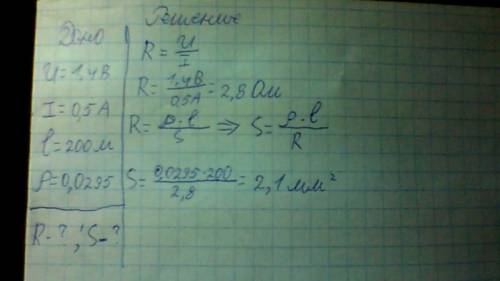 Дано
U = 1,4 В
I = 0,5 А
l = 200 м
ρ = 0,0295
R - ?, S - ?
Решение
R = U/I
R = 1,4 В / 0,5 А = 2,8 Ом
R = ρ·l / S ⇒ S = ρ·l / R
S = 0,0295·200 / 2,8 = 2,1 мм²